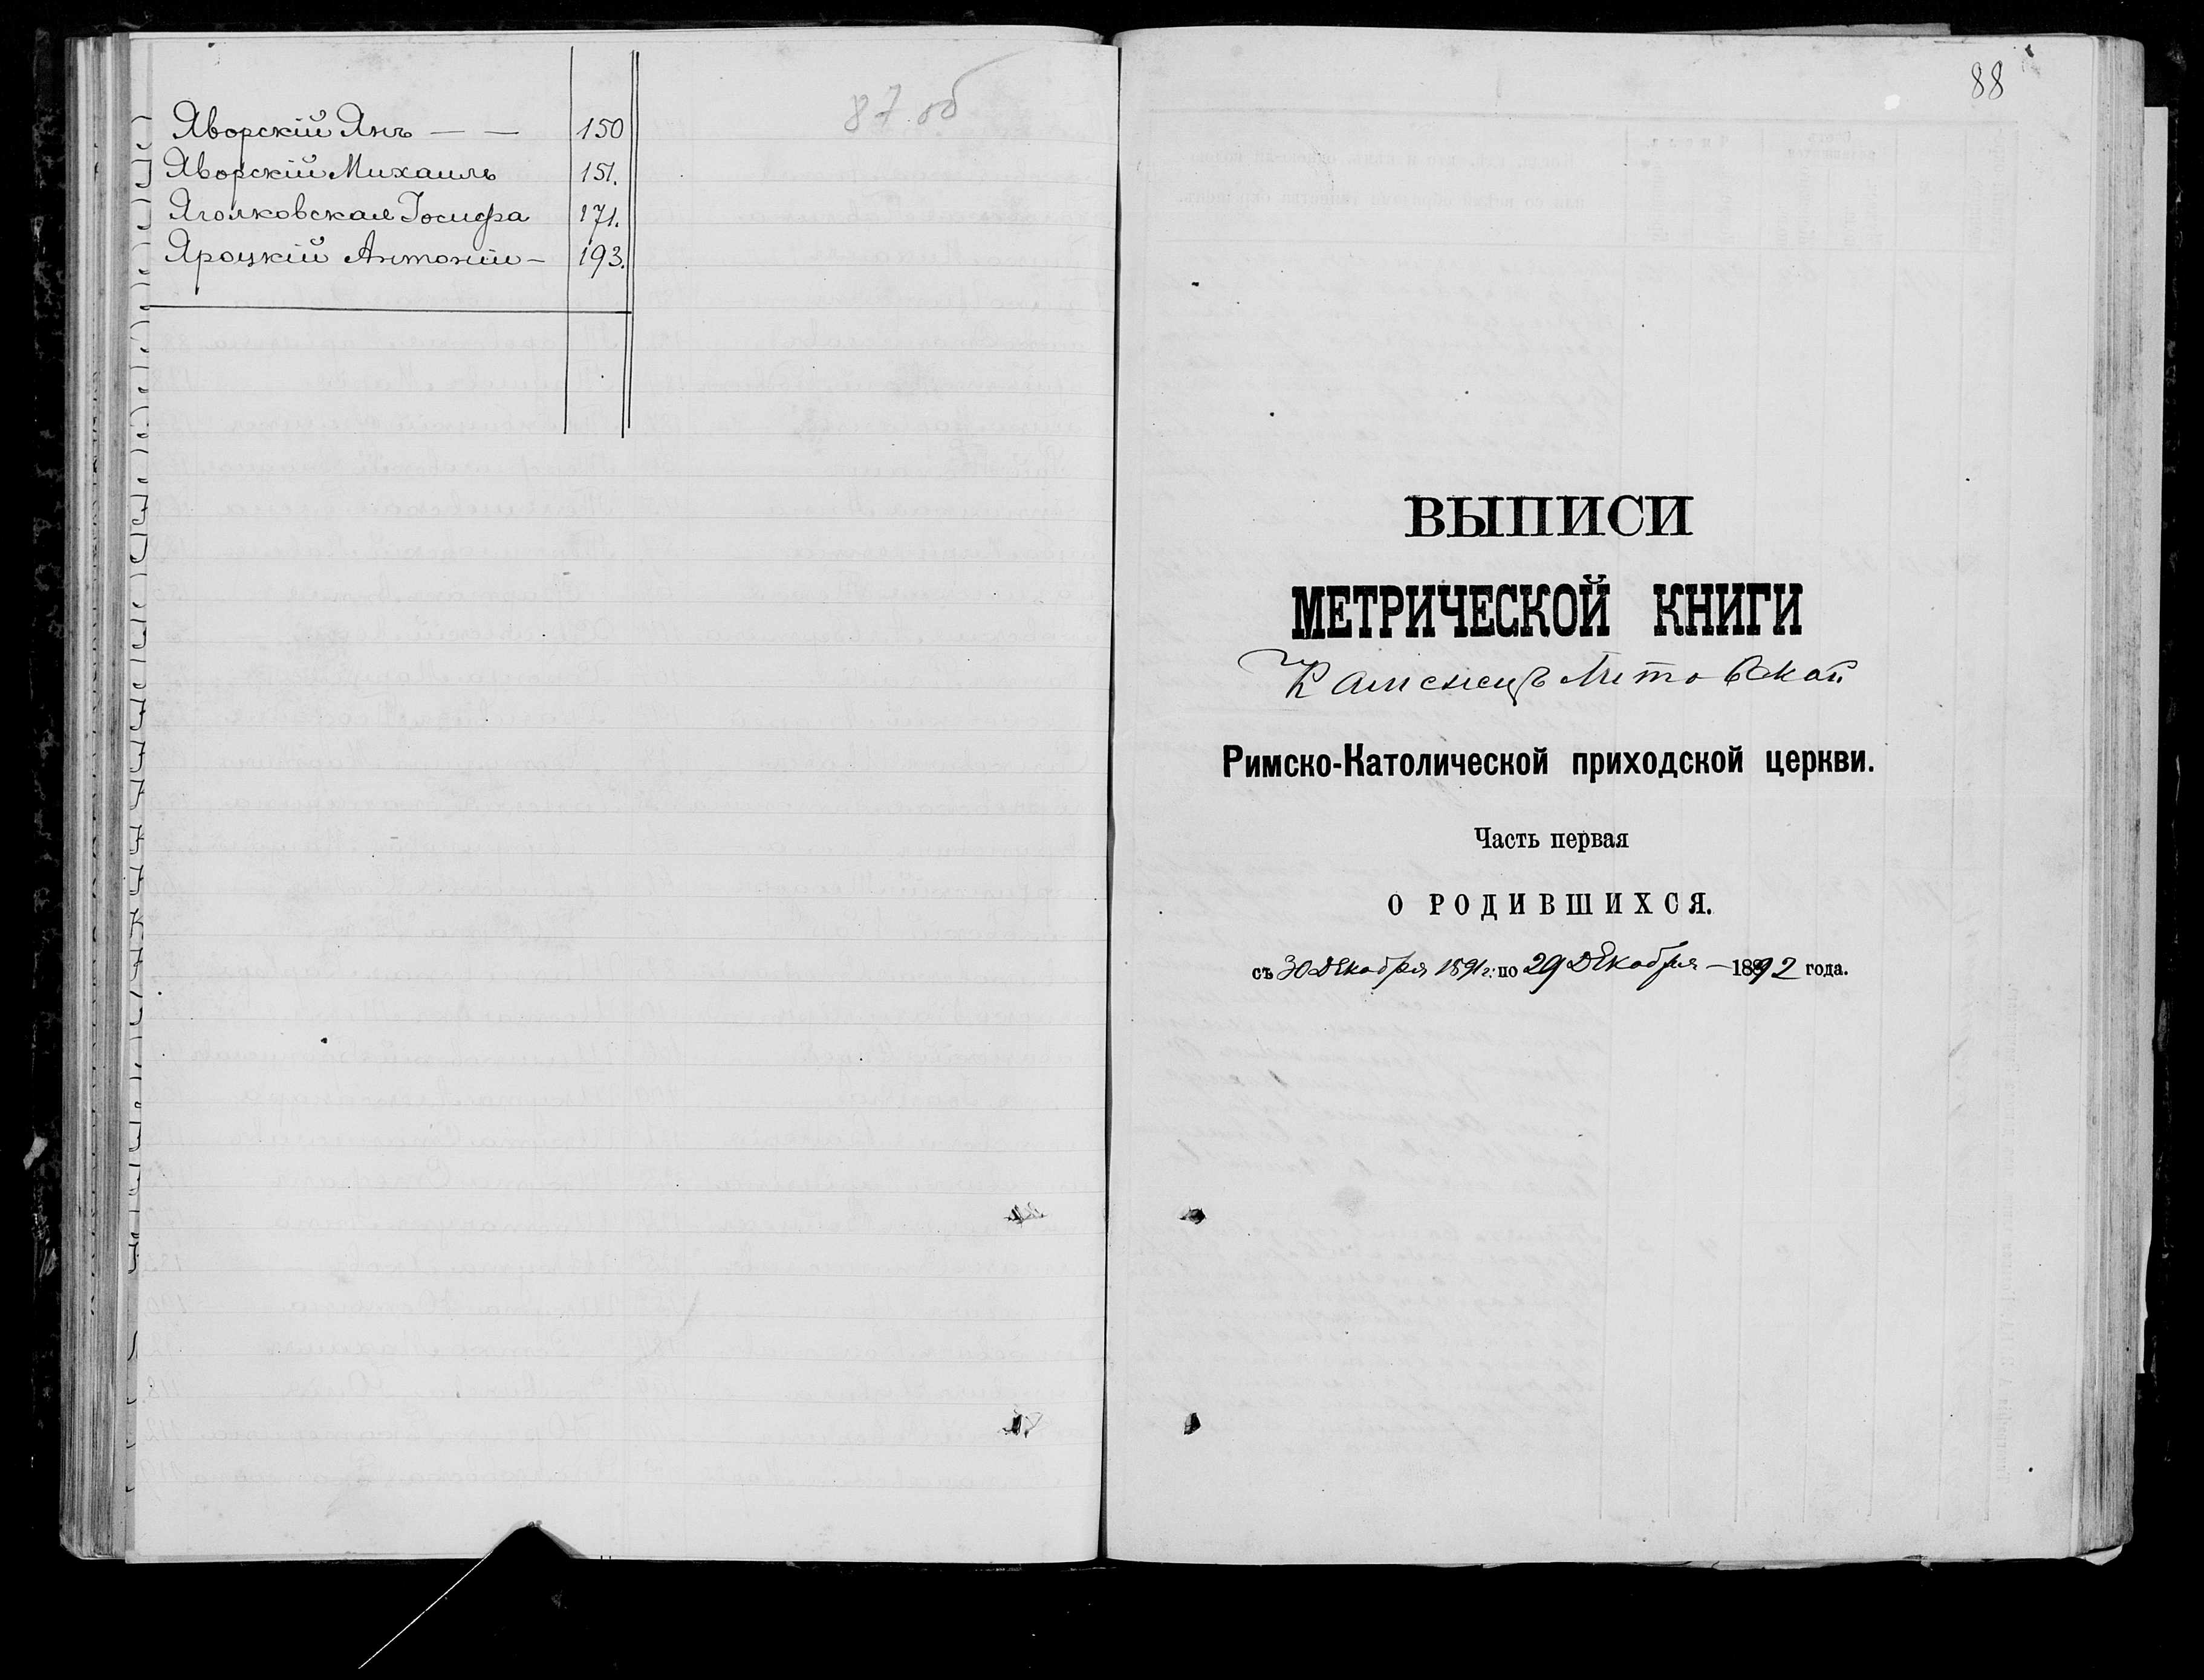 87 об
Яворскій Янъ — — 150
Яворскій Михаилъ 151.
Яголковская Іосифа 171.
Яроцкій Антоній – 193.
88
ВЫПИСИ
МЕТРИЧЕСКОЙ КНИГИ
Каменецъ Литовской
Римско-Католической приходской церкви.
Часть первая
О РОДИВШИХСЯ.
съ 30 Декабря 1891 г. по 29 Декабря — 1892 года.